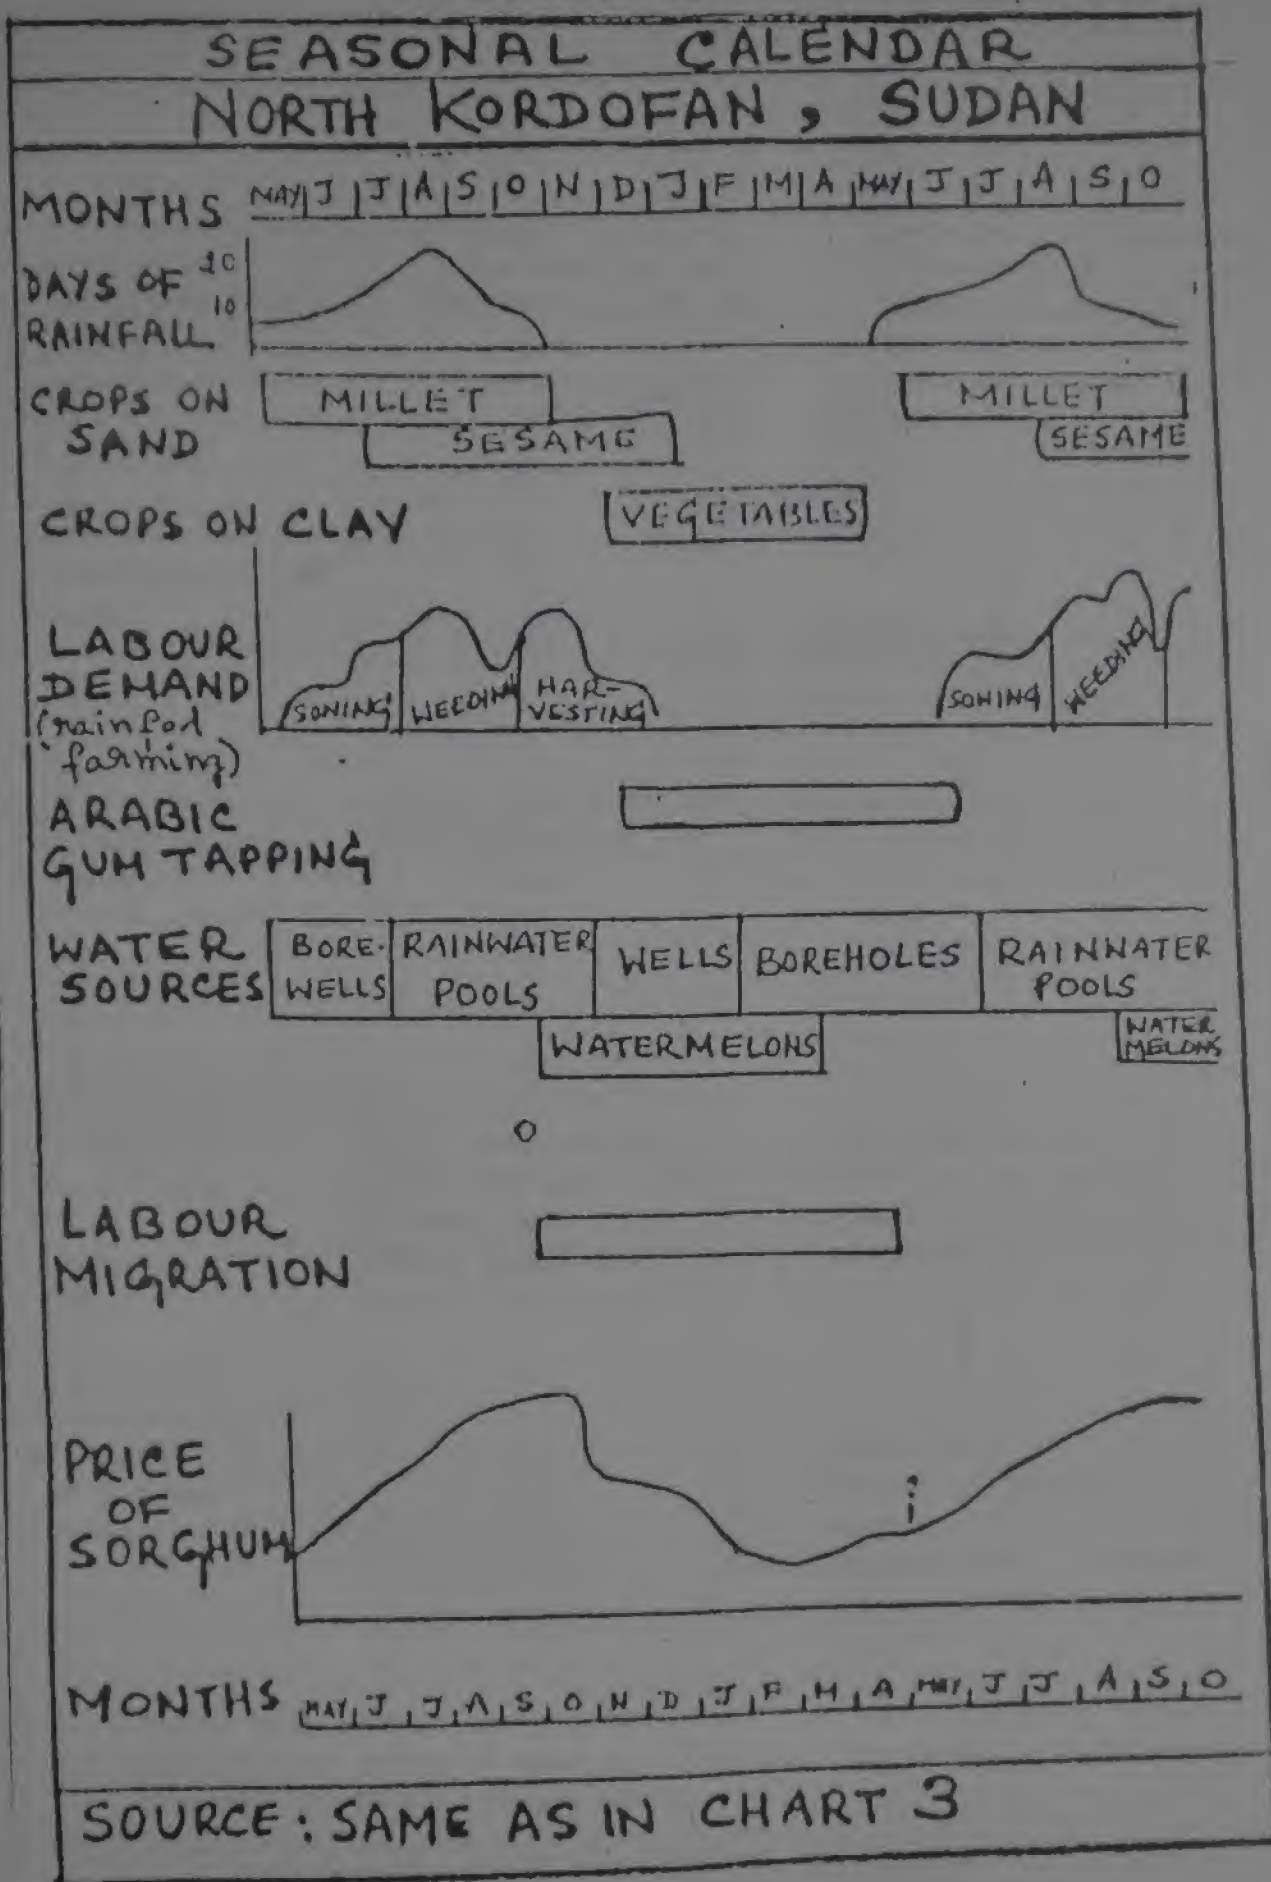 SEASONAL CALENDAR
NORTH KORDOFAN, SUDAN
MONTHS MAY J J A S O N D J F M A MAY J J A S O
DAYS OF 20
RAINFALL 10
CROPS ON MILLET MILLET
SAND SESAME SESAME
CROPS ON CLAY VEGETABLES
LABOUR
DEMAND
(rainfod
farming)
SONING WEEDING HAR-
VESTING SONING WEEDING
ARABIC
GUM TAPPING
WATER BORE- RAINWATER WELLS BOREHOLES RAINWATER
SOURCES WELLS POOLS POOLS
WATERMELONS WATER
MELONS
O
LABOUR
MIGRATION
PRICE
OF
SORGHUM
MONTHS MAY J J A S O N D J F M A MAY J J A S O
SOURCE: SAME AS IN CHART 3